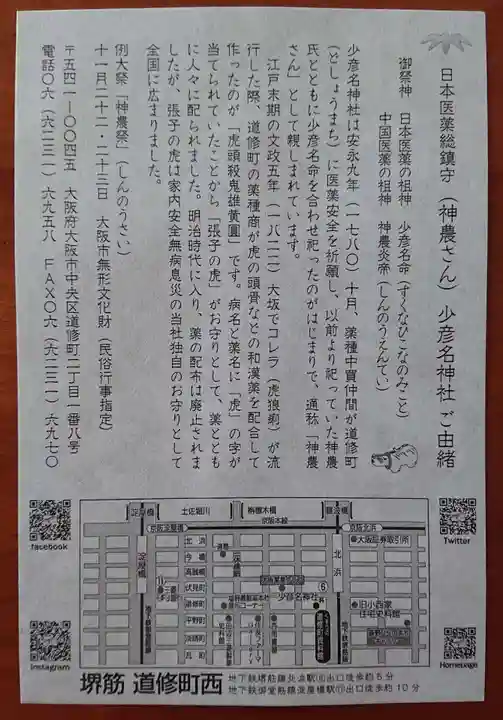 日本医薬総鎮守 (神農さん) 少彦名神社 ご由緒
御祭神 日本医薬の祖神 少彦名命(すくなひこなのみこと)
中国医薬の祖神 神農炎帝(しんのうえんてい)
少彦名神社は安永九年(一七八〇)十月、薬種中買仲間が道修町
(どしょうまち)に医薬安全を祈願し、以前より祀っていた神農
氏とともに少彦名命を合わせ祀ったのがはじまりで、通称「神農
さん」として親しまれています。
江戸末期の文政五年(一八二二)大坂でコレラ(虎狼痢)が流
行した際、道修町の薬種商が虎の頭骨などの和漢薬を配合して
作ったのが「虎頭殺鬼雄黄圓」です。病名と薬名に「虎」の字が
当てられていたことから「張子の虎」がお守りとして、薬ととも
に人々に配られました。明治時代に入り、薬の配布は廃止されま
したが、張子の虎は家内安全無病息災の当社独自のお守りとして
全国に広まりました。
例大祭「神農祭」(しんのうさい)
十一月二十二・二十三日 大阪市無形文化財(民俗行事指定)
〒五四一ー〇〇四五 大阪府大阪市中央区道修町二丁目一番八号
電話〇六(六二三一)六九五八 FAX〇六(六二三一)六九七〇
facebook
Instagram
Twitter
Homepage
淀屋橋
土佐堀川
栴檀木橋
難波橋
京阪本線
京阪淀屋橋
京阪北浜
淀屋橋
北浜
今橋
高麗橋
伏見町
道修町
平野町
淡路町
瓦町
北浜
大阪証券取引所
⑪
⑥
少彦名神社
旧小西家
住宅史料館
堺筋 道修町西
地下鉄堺筋線北浜駅⑥出口徒歩約5分
地下鉄御堂筋線淀屋橋駅⑪出口徒歩約10分